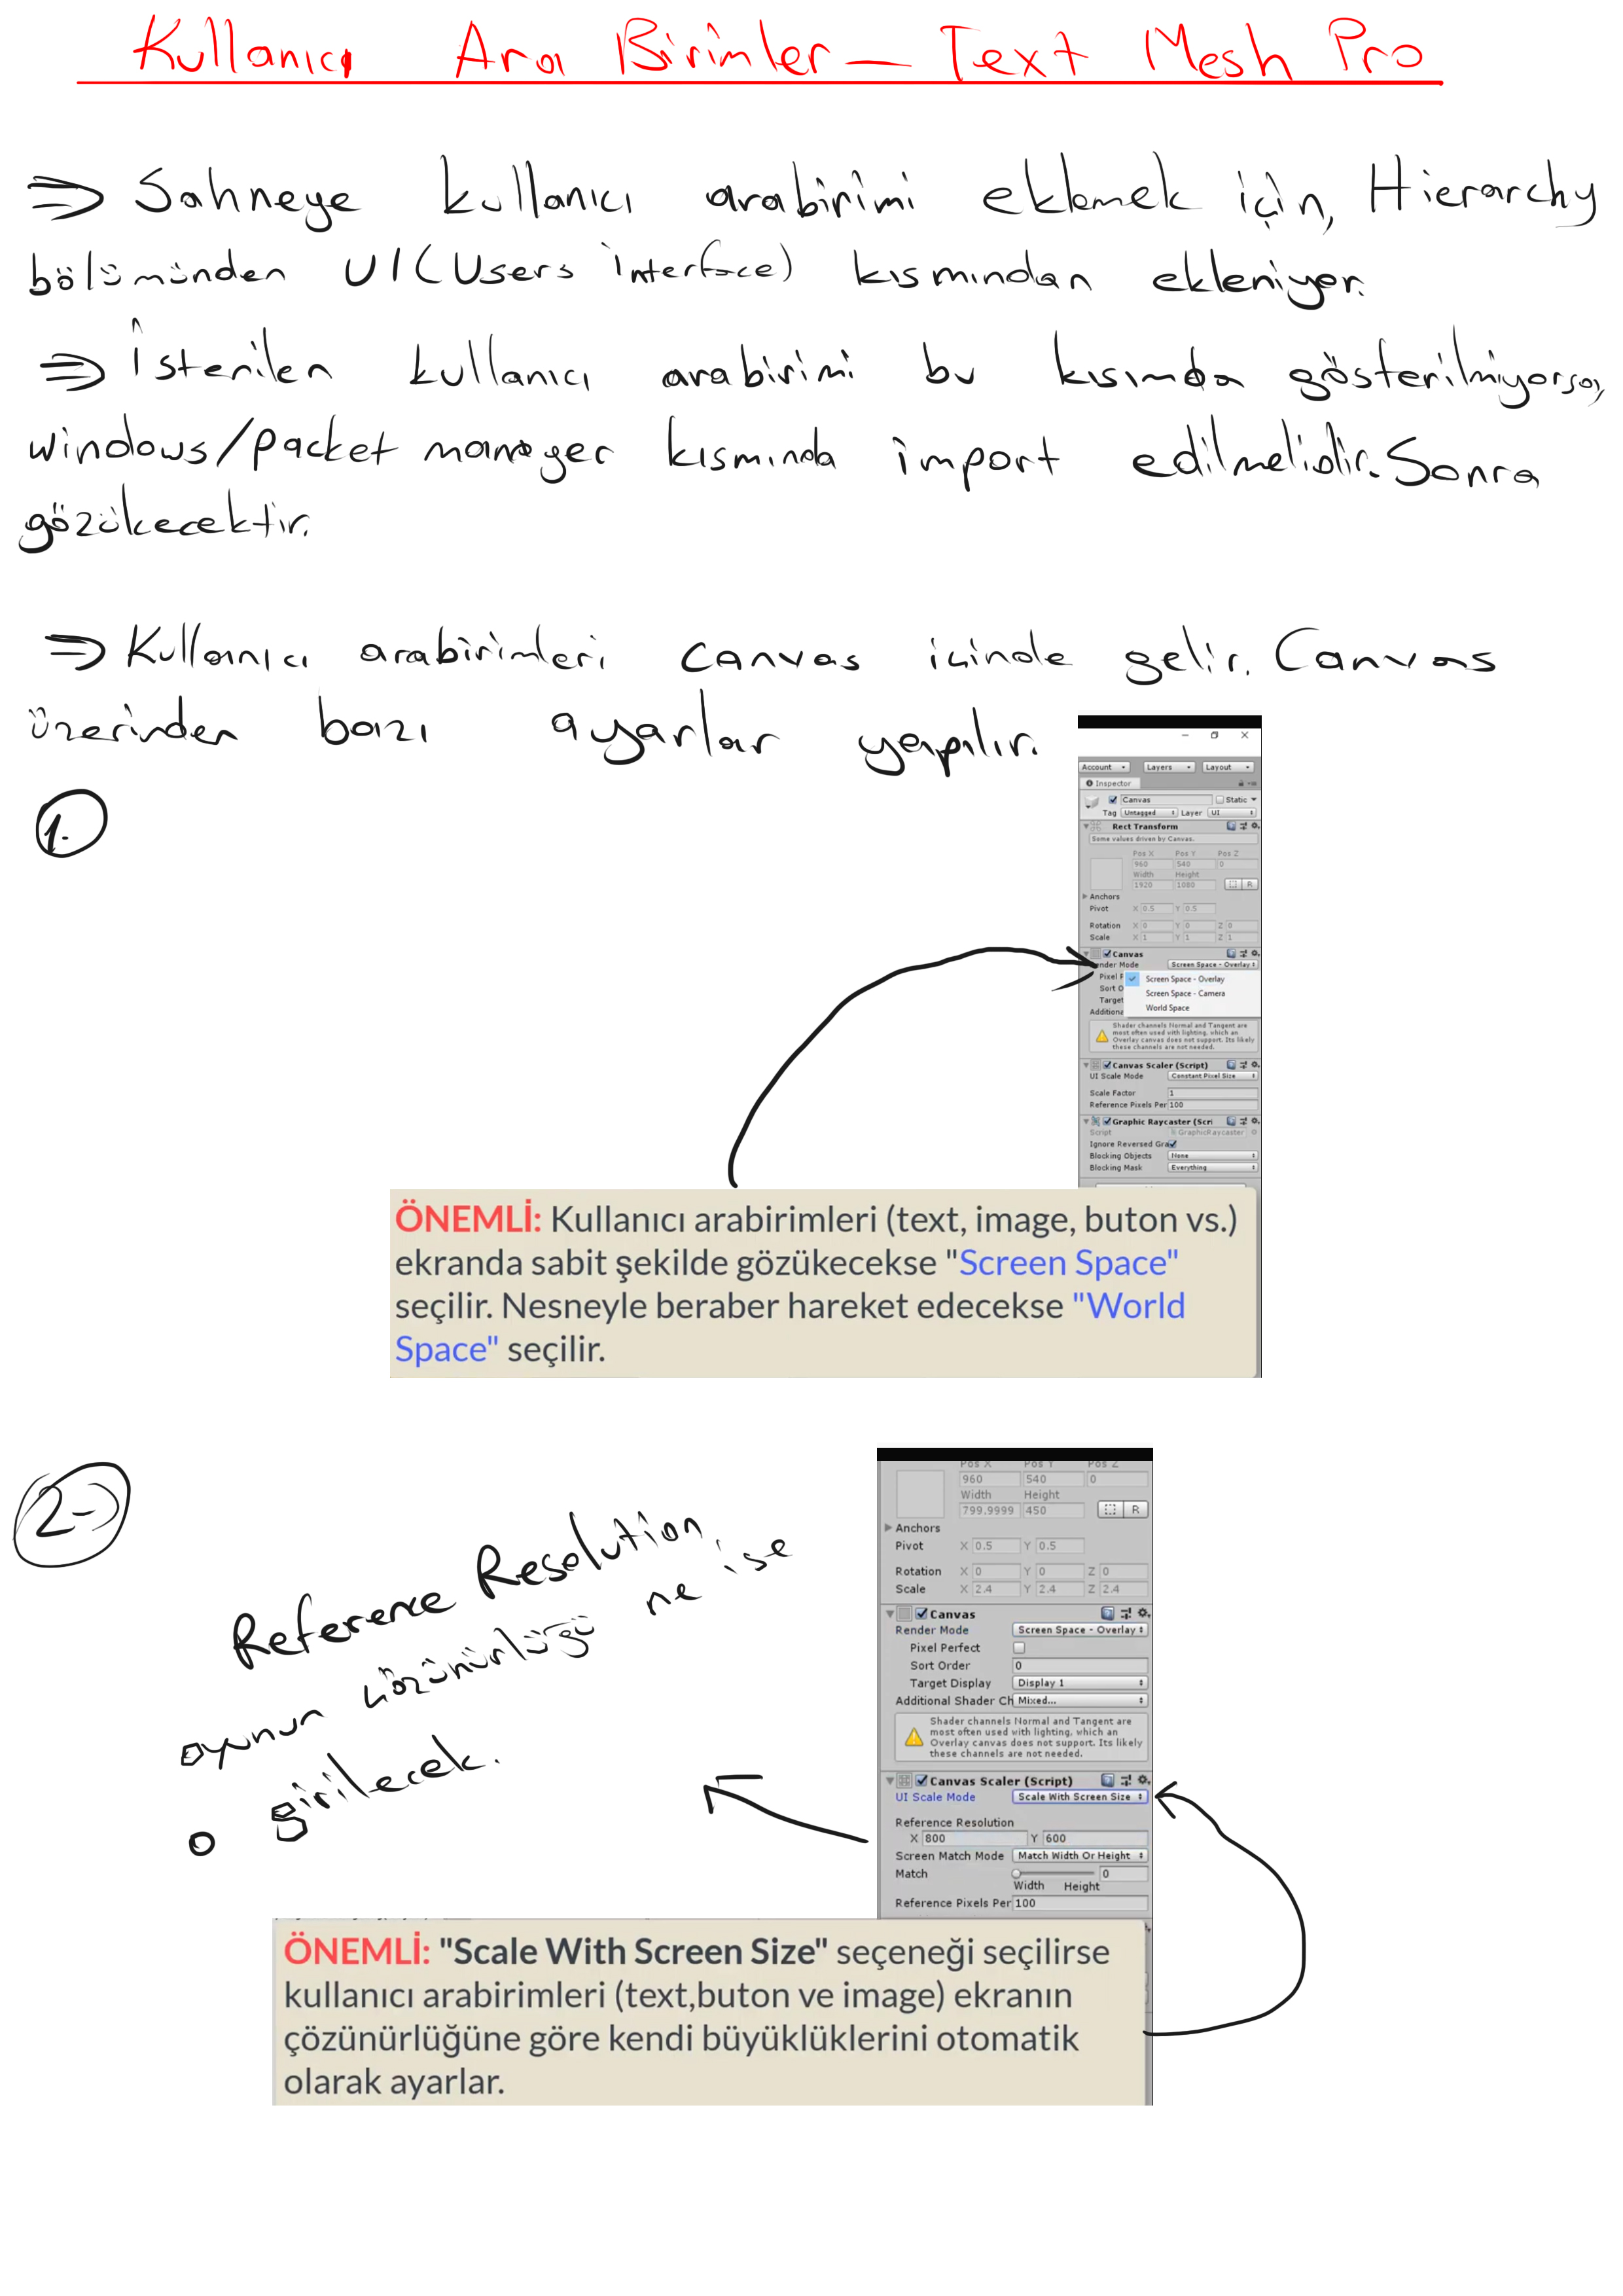 Kullanıcı Ara Birimler — Text Mesh Pro
⇒ Sahneye kullanıcı arabirimi eklemek için, Hierarchy
bölümünden UI(Users interface) kısmından ekleniyor.
⇒ İstenilen kullanıcı arabirimi bu kısımda gösterilmiyorsa,
windows/packet manager kısmında import edilmelidir. Sonra
gözükecektir.
⇒ Kullanıcı arabirimleri canvas içinde gelir. Canvas
üzerinden bazı ayarlar yapılır.
1.
Account Layers Layout
Inspector
Canvas Static
Tag Untagged Layer UI
Rect Transform
Some values driven by Canvas.
Pos X Pos Y Pos Z
960 540 0
Width Height
1920 1080 R
Anchors
Pivot X 0.5 Y 0.5
Rotation X 0 Y 0 Z 0
Scale X 1 Y 1 Z 1
Canvas
ender Mode Screen Space - Overlay
Pixel P Screen Space - Overlay
Sort O Screen Space - Camera
Target World Space
Additiona
Shader channels Normal and Tangent are
most often used with lighting, which an
Overlay canvas does not support. Its likely
these channels are not needed.
Canvas Scaler (Script)
UI Scale Mode Constant Pixel Size
Scale Factor 1
Reference Pixels Per 100
Graphic Raycaster (Scri
Script GraphicRaycaster
Ignore Reversed Gra
Blocking Objects None
Blocking Mask Everything
ÖNEMLİ: Kullanıcı arabirimleri (text, image, buton vs.)
ekranda sabit şekilde gözükecekse "Screen Space"
seçilir. Nesneyle beraber hareket edecekse "World
Space" seçilir.
2-)
Reference Resolution,
oyunun çözünürlüğü ne ise
o girilecek.
Pos X Pos Y Pos Z
960 540 0
Width Height
799.9999 450 R
Anchors
Pivot X 0.5 Y 0.5
Rotation X 0 Y 0 Z 0
Scale X 2.4 Y 2.4 Z 2.4
Canvas
Render Mode Screen Space - Overlay
Pixel Perfect
Sort Order 0
Target Display Display 1
Additional Shader Ch Mixed...
Shader channels Normal and Tangent are
most often used with lighting, which an
Overlay canvas does not support. Its likely
these channels are not needed.
Canvas Scaler (Script)
UI Scale Mode Scale With Screen Size
Reference Resolution
X 800 Y 600
Screen Match Mode Match Width Or Height
Match 0
Width Height
Reference Pixels Per 100
ÖNEMLİ: "Scale With Screen Size" seçeneği seçilirse
kullanıcı arabirimleri (text,buton ve image) ekranın
çözünürlüğüne göre kendi büyüklüklerini otomatik
olarak ayarlar.